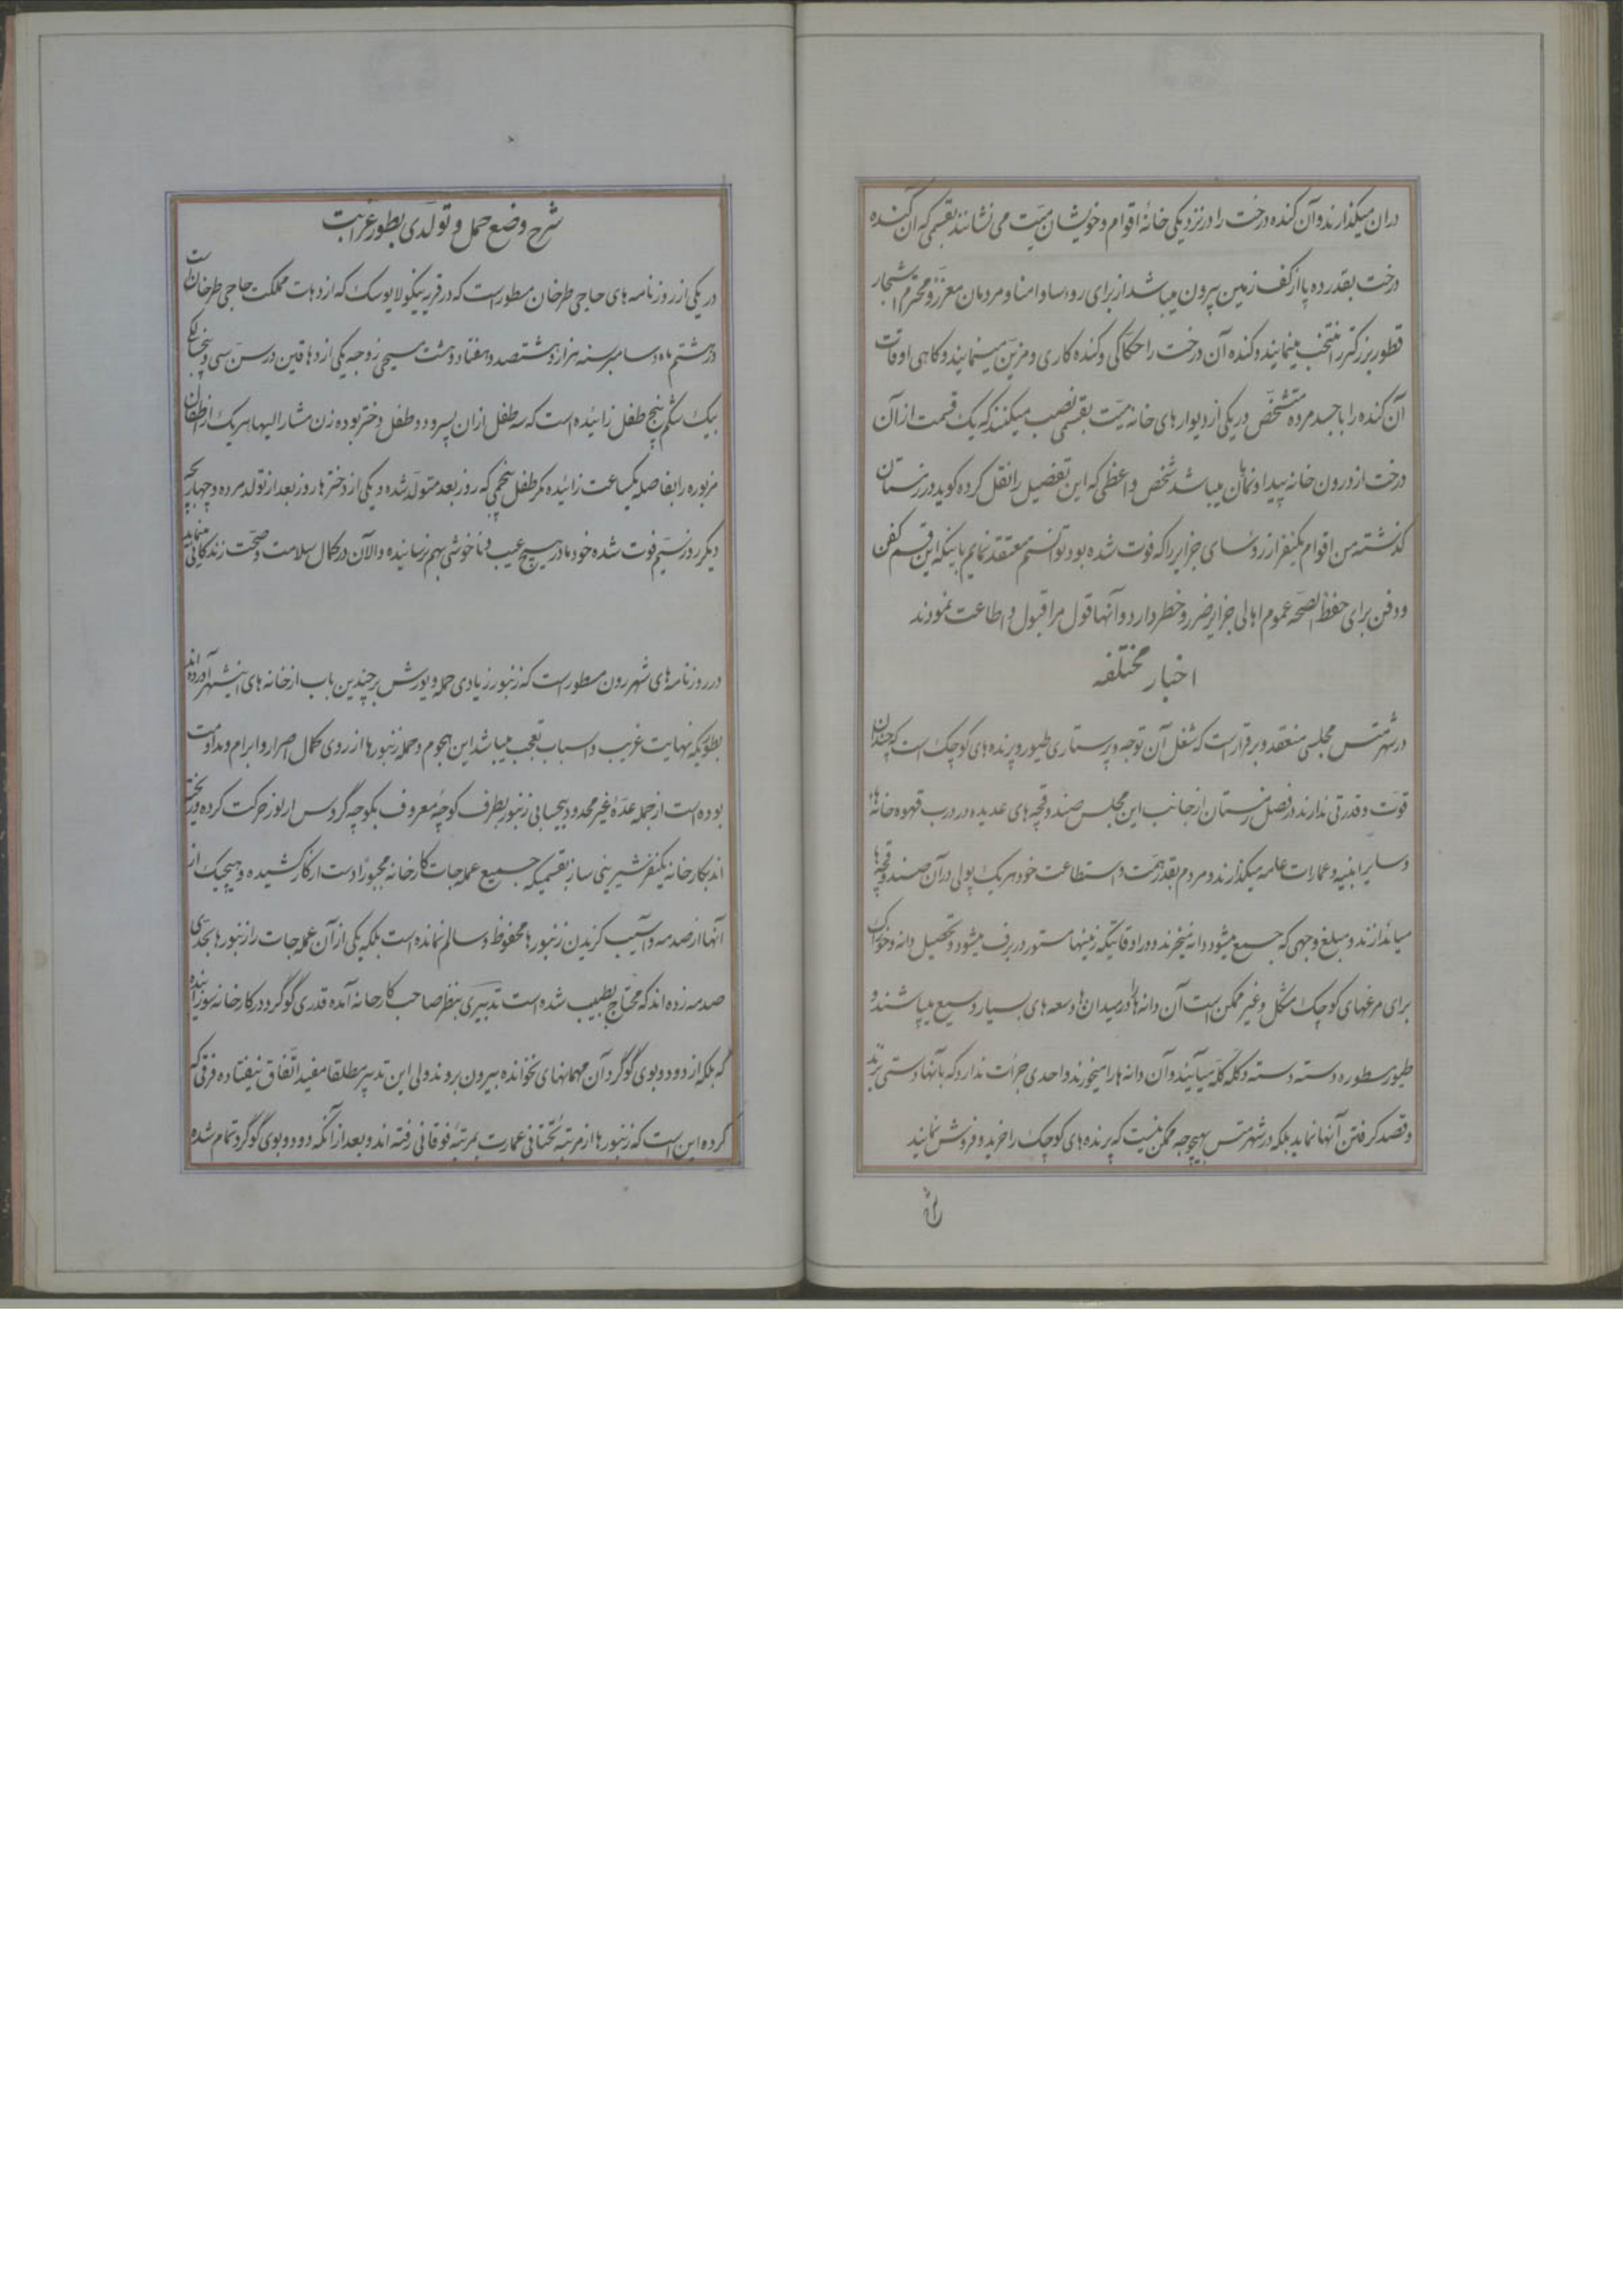 دران میگذارند و آن کنده درخت را در نزدیکی خانهٔ اقوام و خویشان میّت می نشانند بقسمی که آن کنده
درخت بقدر ده پا از کف زمین بیرون میباشد از برای روساء و امنا و مردمان معزّز و محترم اشجار
قطور بزرکتر را منتخب مینمایند و کنده آن درخت را حکاکی و کنده کاری و مزیّن مینمایند و کاهی اوقات
آن کنده را با جسد مرده متشخّص در یکی از دیوارهای خانه میّت بقسمی نصب میکنند که یک قسمت از آن
درخت از درون خانه پیدا و نمایان میباشد شخص واعظی که این تفصیل را نقل کرده کوید در زمستان
کذشته من اقوام یکنفر از روسای جزایر را که فوت شده بود توانستم معتقد نمایم باینکه این قسم کفن
و دفن برای حفظ الصّحه عموم اهالی جزایر ضرر و خطر دارد و آنها قول مرا قبول و اطاعت نمودند
اخبار مختلفه
در شهر متس مجلسی منعقد و برقرار است که شغل آن توجه و پرستاری طیور و پرنده های کوچک است که چندان
قوّت و قدرتی ندارند در فصل زمستان از جانب این مجلس صندوقچه های عدیده در درب قهوه خانه ها
و سایر ابنیه و عمارات عامه میکذارند و مردم بقدر همّت و استطاعت خود هر یک پولی در آن صندوقچه ها
میاندازند و مبلغ وجهی که جمیع میشود دانه میخرند و در اوقاتیکه زمینها مستور در برف میشود و تحصیل دانه و خوراک
برای مرغهای کوچک مشکل و غیر ممکن است آن دانه ها را در میدان ها و سعه های بسیار وسیع میپاشند و
طیور مسطوره دسته دسته و کله کله میآیند و آن دانه ها را میخورند و احدی جرأت ندارد که بآنها دستی بزند
و قصد کرفتن آنها نماید بلکه در شهر متس بهیچوجه ممکن نیست که پرنده های کوچک را خرید و فروش نمایند
شرح وضع حمل و تولّدی بطور غرابت
در یکی از روزنامه های حاجی طرخان مسطور است که در قریه نیکولایوسک که از دهات مملکت حاجی طرخان است
در هشتم ماه دسامبر سنه هزار و هشتصد و هفتاد و هشت مسیحی زوجه یکی از دهاقین در سنّ سی و پنجسالکی
بیک شکم پنج طفل زائیده است که سه طفل از ان پسر و دو طفل دختر بوده زن مشار الیها هر یک از طفلان
مزبوره را بفاصله یکساعت زائیده مکر طفل پنجمی که روز بعد متولّد شده و یکی از دخترها روز بعد از تولد مرده و چهار بچه
دیکر روز سیّم فوت شده خود مادر هیچ عیب و ناخوشی بهم نرسانیده و الآن در کمال سلامت و صحّت زندکانی مینماید
در روزنامه های شهر رون مسطور است که زنبور زیادی حمله و یورش بر چندین باب از خانه های اینشهر آورده اند
بطوریکه نهایت غریب و اسباب تعجب میباشد این هجوم و حمله زنبورها از روی کمال اصرار و ابرام و مداومت
بوده است از جمله عدّه غیر محدود بیحسابی زنبور بطرف کوچهٔ معروف بکوچه گروس ارلوز حرکت کرده و ریخته
اند بکارخانه یکنفر شیرینی ساز بقسمیکه جمیع عمله جات کارخانه مجبوراً دست از کار کشیده و هیچیک از
آنها از صدمه و آسیب کزیدن زنبورها محفوظ و سالم نمانده است بلکه یکی از آن عمله جات را زنبورها بحدّی
صدمه زده اند که محتاج بطبیب شده است تدبیری بنظر صاحب کارخانه آمده قدری گوگرد در کارخانه سوزانیده
که بلکه از دود و بوی گوگرد آن مهمانهای نخوانده بیرون بروند ولی این تدبیر مطلقا مفید اتّفاق نیفتاده فرقی که
کرده این است که زنبورها از مرتبهٔ تحتانی عمارت بمرتبهٔ فوقانی رفته اند و بعد از آنکه دود و بوی گوگرد تمام شده